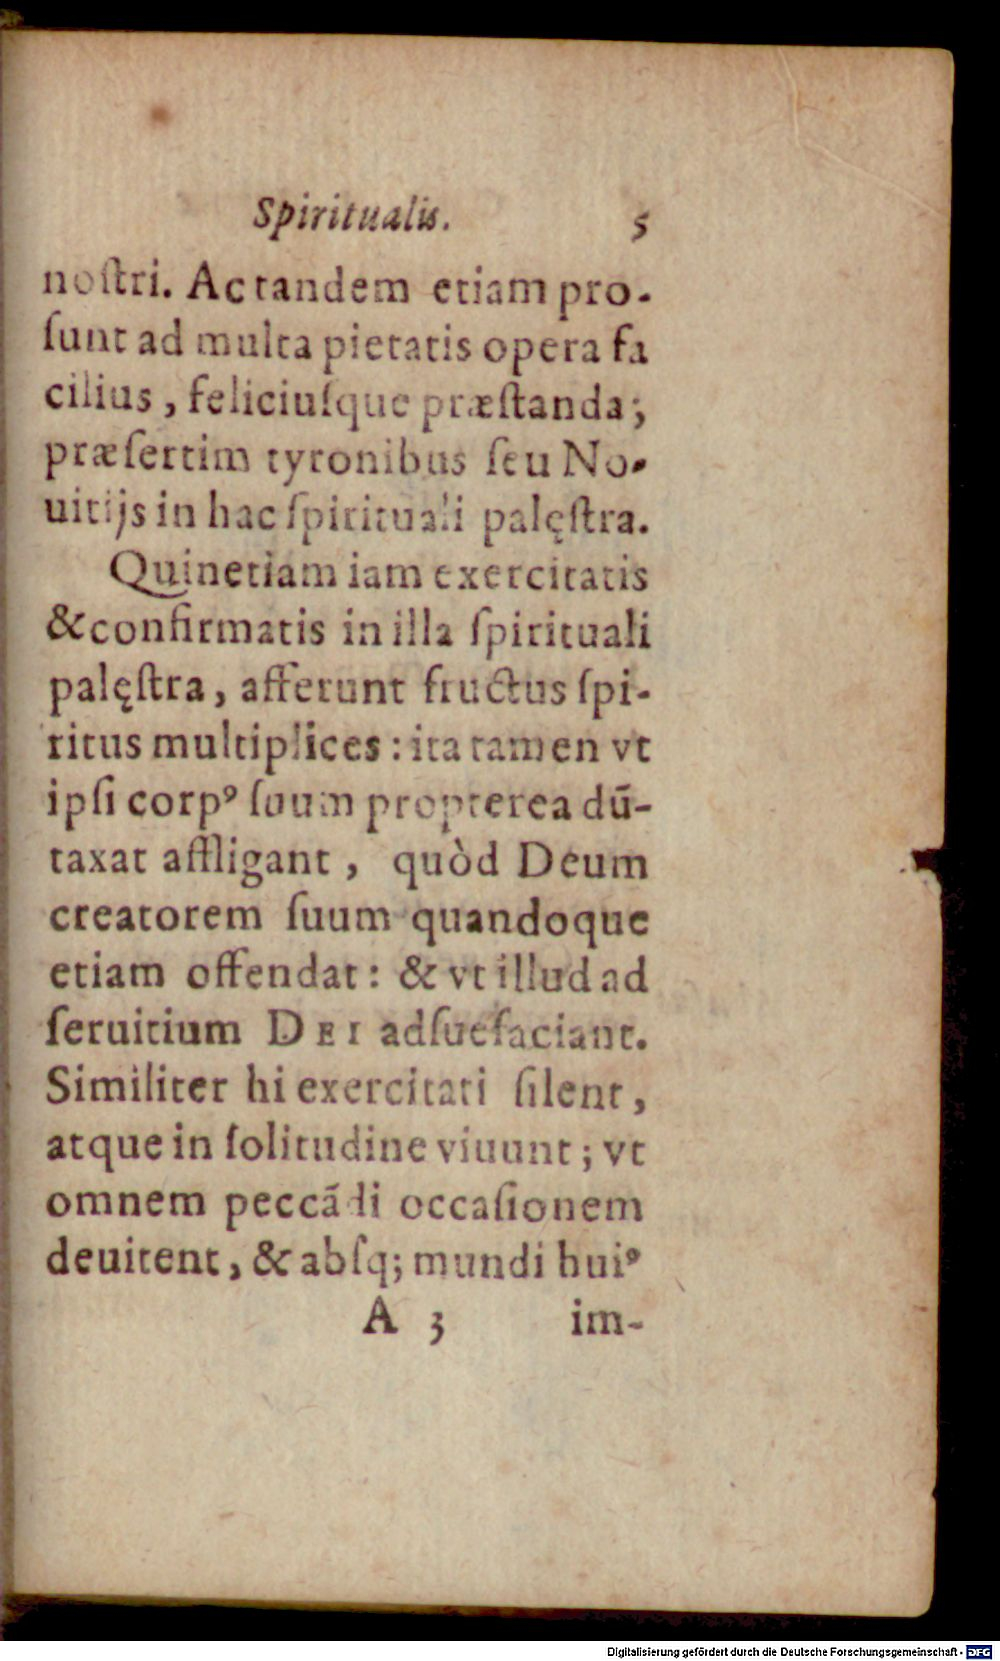 Spiritualis. 5
noſtri. Ac tandem etiam pro-
ſunt ad multa pietatis opera fa
cilius, feliciuſque præſtanda;
præſertim tyronibus ſeu No-
uitijs in hac ſpirituali palęſtra.
Quinetiam iam exercitatis
& confirmatis in illa ſpirituali
palęſtra, afferunt fructus ſpi-
ritus multiplices: ita tamen vt
ipſi corpꝰ ſuum propterea dū-
taxat affligant, quòd Deum
creatorem ſuum quandoque
etiam offendat: & vt illud ad
ſeruitium DEI adſuefaciant.
Similiter hi exercitati ſilent,
atque in ſolitudine viuunt; vt
omnem peccãdi occaſionem
deuitent, & abſq; mundi huiꝰ
A 3 im-
Digitalisierung gefördert durch die Deutsche Forschungsgemeinschaft - DFG